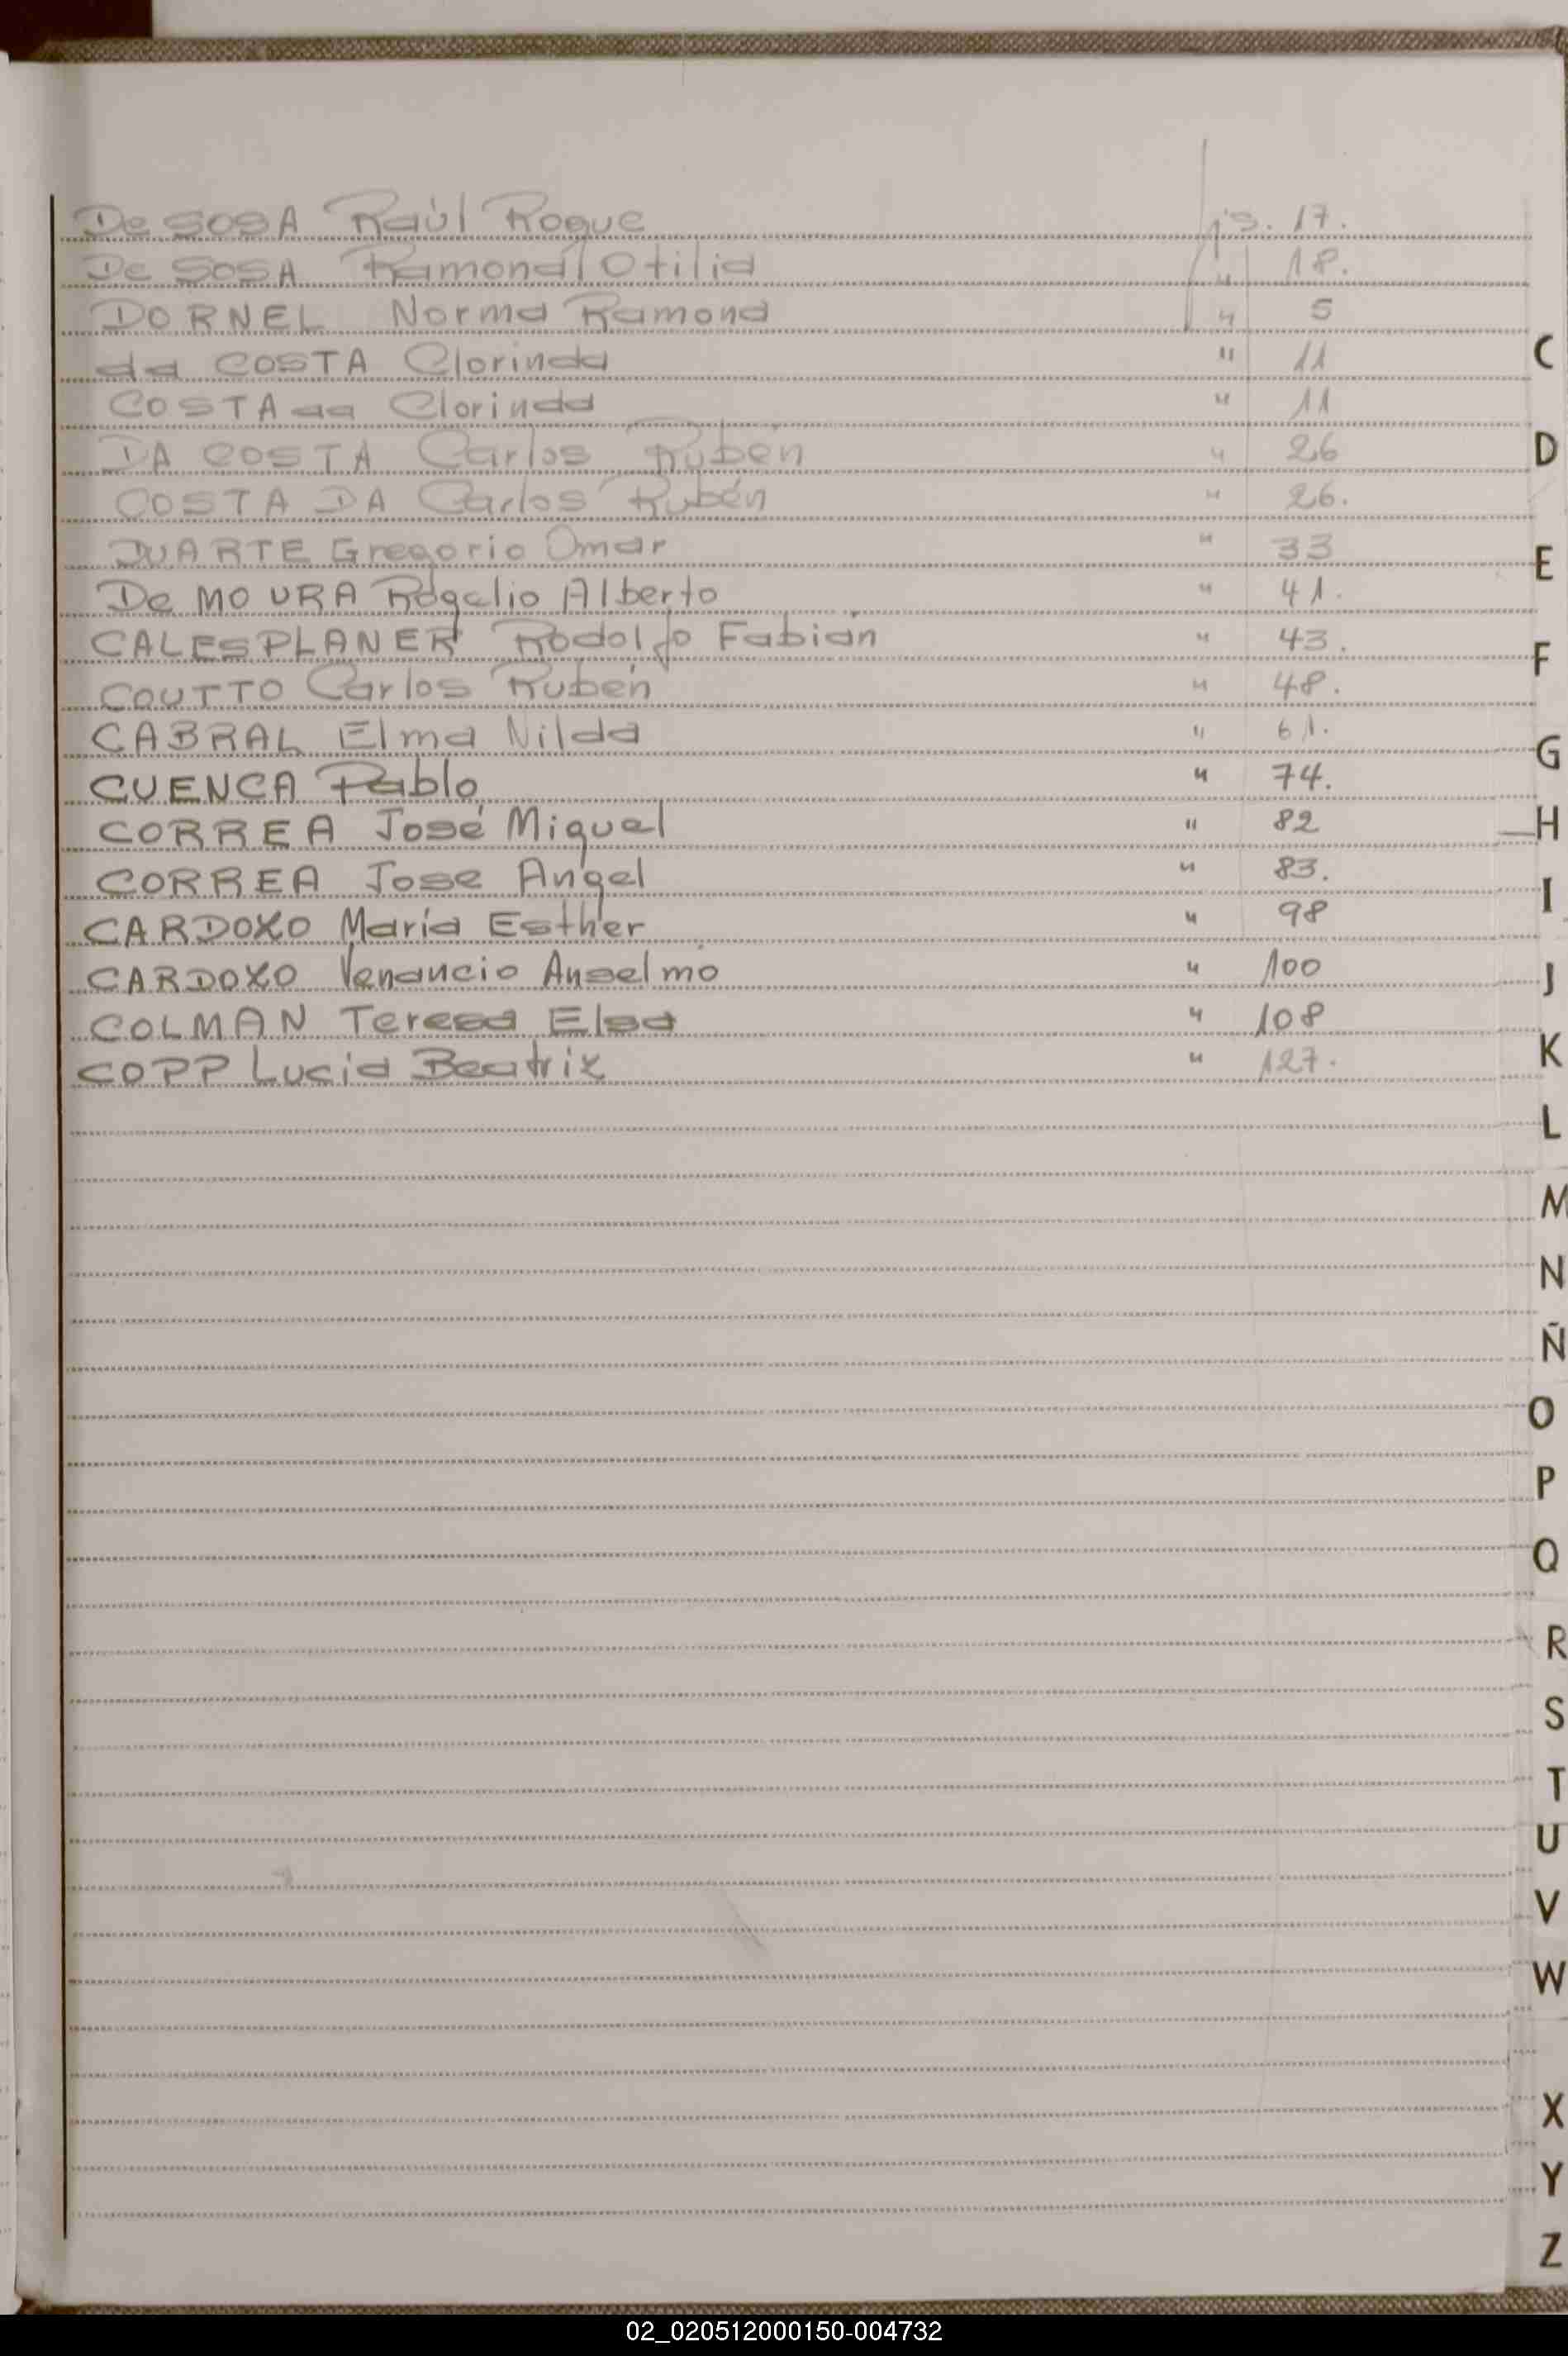 De SOSA Raúl Roque fjs. 17.
De SOSA Ramona Otilia " 18.
DORNEL Norma Ramona " 5
da COSTA Clorinda " 11
COSTA da Clorinda " 11
DA COSTA Carlos Rubén " 26
COSTA DA Carlos Rubén " 26.
DUARTE Gregorio Omar " 33
De MOURA Rogelio Alberto " 41.
CALESPLANER Rodolfo Fabián " 43.
COUTTO Carlos Rubén " 48.
CABRAL Elma Nilda " 61.
CUENCA Pablo " 74.
CORREA José Miguel " 82
CORREA Jose Angel " 83.
CARDOXO María Esther " 98
CARDOXO Venancio Anselmo " 100
COLMAN Teresa Elsa " 108
COPP Lucia Beatrix " 127.
C
D
E
F
G
H
I
J
K
L
M
N
Ñ
O
P
Q
R
S
T
U
V
W
X
Y
Z
02_020512000150-004732